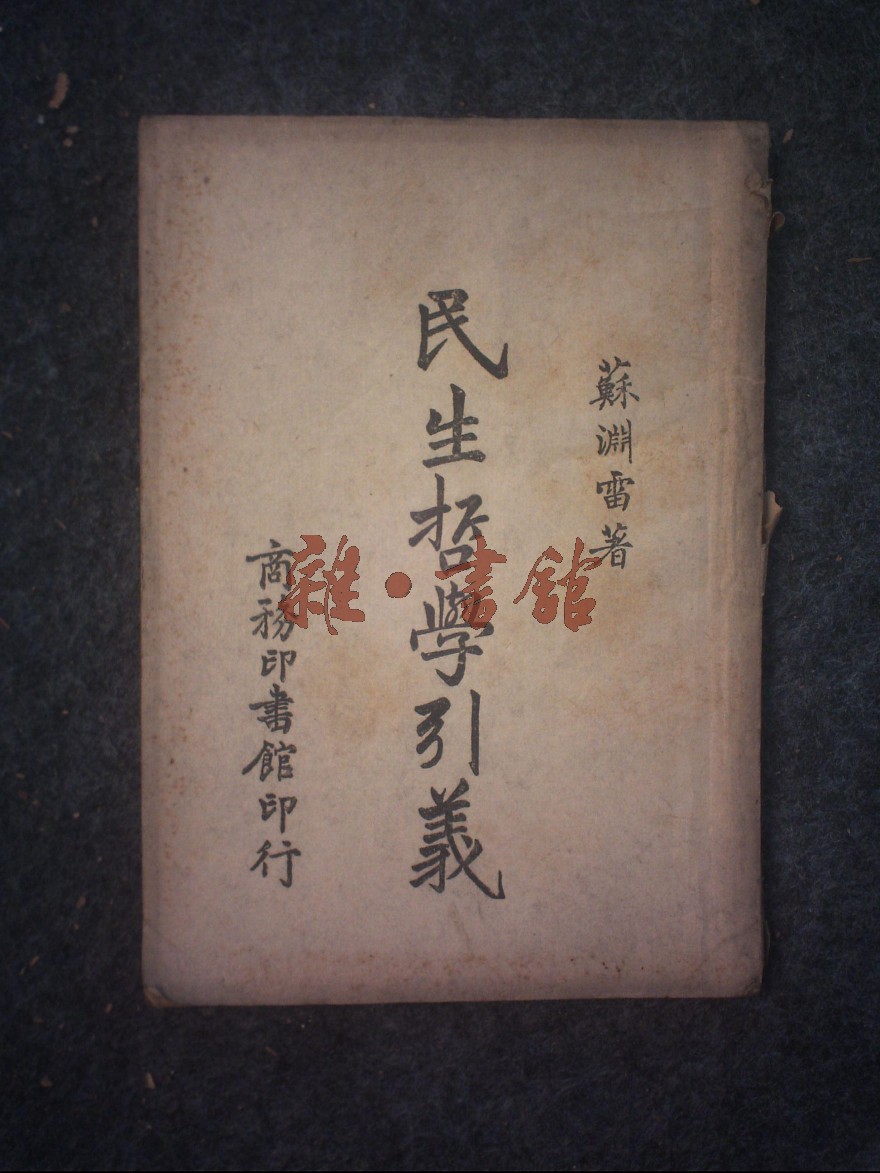 蘇淵雷著
民生哲學引義
商務印書館印行
雜·書館